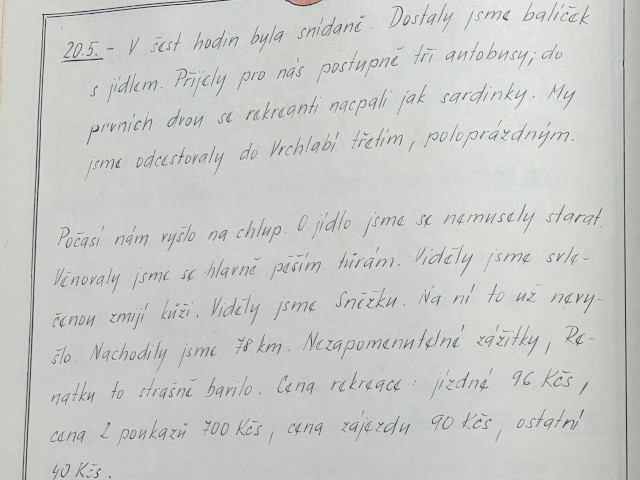 20.5. - V šest hodin byla snídaně. Dostaly jsme balíček
s jídlem. Přijely pro nás postupně tři autobusy; do
prvních dvou se rekreanti nacpali jak sardinky. My
jsme odcestovaly do Vrchlabí třetím, poloprázdným.
Počasí nám vyšlo na chlup. O jídlo jsme se nemusely starat.
Věnovaly jsme se hlavně pěším túrám. Viděly jsme svle-
čenou zmijí kůži. Viděly jsme Sněžku. Na ní to už nevy-
šlo. Nachodily jsme 78 km. Nezapomenutelné zážitky, Re-
natku to strašně bavilo. Cena rekreace: jízdné 96 Kčs,
cena 2 poukazů 700 Kčs, cena zájezdu 90 Kčs, ostatní
40 Kčs.